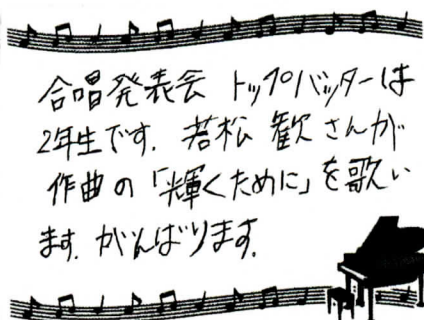 合唱発表会 トップバッターは
2年生です. 若松 歓 さんが
作曲の「輝くために」を歌い
ます. がんばります.